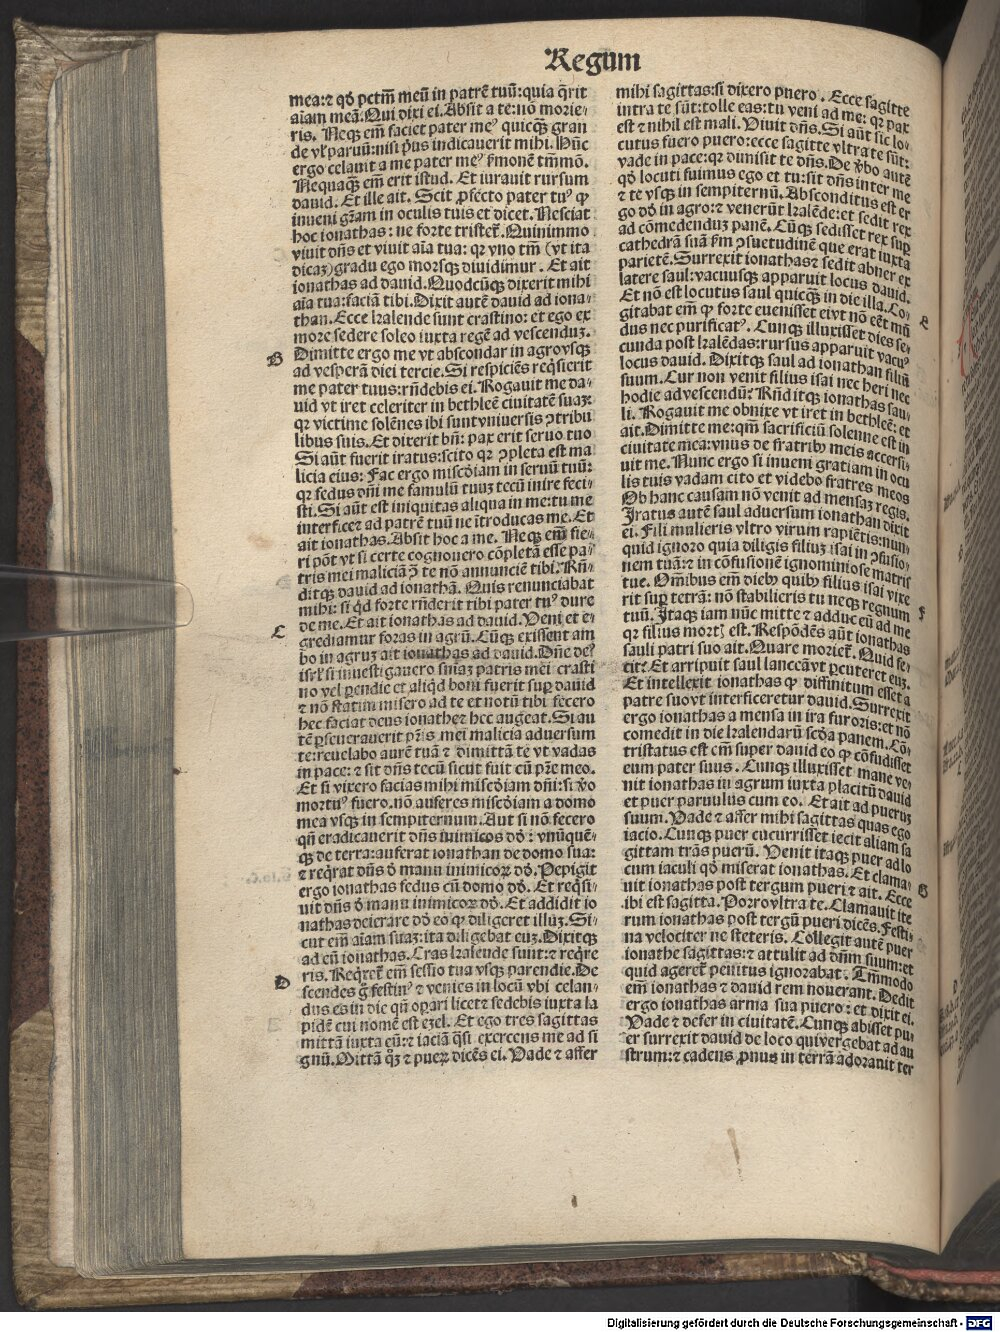 Regum
mea:⁊ qđ pctm̄ meū in patrē tuū:quia q̄rit
aīam meā. Qui dixi ei. Absit a te:nō morie⸗
ris. Neq̄ em̄ faciet pater meꝰ quicq̄ꝫ gran
de vl̓ paruū:nisi p̓us indicauerit mihi. Hūc
ergo celauit a me pater meꝰ ẜmonē tm̄mō.
Nequaq̄ꝫ em̄ erit istud. Et iurauit rursum
dauid. Et ille ait. Scit ꝓfecto pater tuꝰ ꝙ
inueni gr̄am in oculis tuis et dicet. Nesciat
hoc ionathas: ne forte tristet᷑. Quinimmo
viuit dn̄s et viuit aīa tua: qꝛ vno tm̄ (vt ita
dicaꝫ) gradu ego morsqꝫ diuidimur. Et ait
ionathas ad dauid. Quodcūqꝫ dixerit mihi
aīa tua:faciā tibi. Dixit autē dauid ad iona⸗
than. Ecce kalende sunt crastino: et ego ex
more sedere soleo iuxta regē ad vescenduꝫ.
B
Dimitte ergo me vt abscondar in agro vsqꝫ
ad vesperā diei tercie. Si respiciēs reqͥsierit
me pater tuus:rn̄debis ei. Rogauit me da⸗
uid vt iret celeriter in bethleē ciuitatē suaꝫ:
qꝛ victime solēnes ibi sunt vniuersis ꝯtribu
libus suis. Et dixerit bn̄: pax erit seruo tuo
Si aūt fuerit iratus:scito qꝛ ꝯpleta est ma
licia eius: Fac ergo miscdiam in seruū tuū:
qꝛ fedus dn̄i me famulū tuuꝫ tecū inire feci⸗
sti. Si aūt est iniquitas aliqua in me:tu me
interfice:⁊ ad patrē tuū ne ītroducas me. Et
ait ionathas. Absit hoc a me. Neqꝫ em̄ fie⸗
ri pōt vt si certe cognouero cōpletā esse pa⸗
tris mei maliciā ꝯ̄ te nō annunciē tibi. Rn̄⸗
ditqꝫ dauid ad ionathā. Quis renunciabat
mihi: si qͥd forte rn̄derit tibi pater tuꝰ dure
de me. Et ait ionathas ad dauid. Veni et e⸗
C
grediamur foras in agrū. Cūqꝫ exissent am
bo in agruꝫ ait ionathas ad dauid. Dn̄e deꝰ
isrl̓ si inuestigauero sn̄iaꝫ patris mei crasti
no vel perendie et aliqͥd boni fuerit suꝑ dauid
⁊ nō statim misero ad te et notū tibi fecero
hec faciat deus ionathe⁊ hec augeat. Si au
tē ꝑseuerauerit pr̄is mei malicia aduersum
te:reuelabo aurē tuā ⁊ dimittā te vt vadas
in pace: ⁊ sit dn̄s tecū sicut fuit cū pr̄e meo.
Et si vixero facias mihi miscdiam dn̄i:si v̓o
mortuꝰ fuero. nō auferes miscdiam a domo
mea vsqꝫ in sempiternum. Aut si nō fecero
qn̄ eradicauerit dn̄s inimicos dd̄: vnūquē⸗
qꝫ de terra:auferat ionathan de domo sua:
⁊ reqͥrat dn̄s d̓ manu inimicoꝝ dd̄. Pepigit
ergo ionathas fedus cū domo dd̄. Et reqͥsi⸗
uit dn̄s d̓ manu inimicoꝝ dd̄. Et addidit io
nathas deierare dd̄ eo ꝙ diligeret illuꝫ. Si⸗
cut em̄ aīam suaꝫ:ita diligebat euꝫ. Dixitqꝫ
ad eū ionathas. Cras kalende sunt:⁊ reqͥre
ris. Reqͥret᷑ em̄ sessio tua vsqꝫ parendie. De
D
scendes g̊ festinꝰ ⁊ venies in locū vbi celan⸗
dus es in die qn̄ oꝑari licet⁊ sedebis iuxta la
pidē cui nomē est eꝫel. Et ego tres sagittas
mittā iuxta eū:⁊ iaciā qͣsi exercens me ad si
gnū. Mittā qͦꝫ ⁊ pueꝝ dicēs ei. Vade ⁊ affer
mihi sagittas:si dixero puero. Ecce sagitte
intra te sūt:tolle eas:tu veni ad me: qꝛ pax
est ⁊ nihil est mali. Viuit dn̄s. Si aūt sic lo⸗
cutus fuero puero:ecce sagitte vltra te sūt:
vade in pace:qꝛ dimisit te dn̄s. De v̓bo autē
qđ locuti fuimus ego et tu:sit dn̄s inter me
⁊ te vsqꝫ in sempiternū. Absconditus est er
go dd̄ in agro:⁊ venerūt kalēde:et sedit rex
ad cōmedenduꝫ panē. Cūqꝫ sedisset rex suꝑ
cathedrā suā ẜm ꝯsuetudinē que erat iuxta
parietē. Surrexit ionathas⁊ sedit abner ex
latere saul:vacuusqꝫ apparuit locus dauid.
Et nō est locutus saul quicqꝫ in die illa. Co⸗
E
gitabat em̄ ꝙ forte euenisset ei vt nō eēt mū
dus nec purificatꝰ. Cunqꝫ illuxisset dies se⸗
cunda post kalēdas:rursus apparuit vacuꝰ
locus dauid. Dixitqꝫ saul ad ionathan filiū
suum. Cur non venit filius isai nec heri nec
hodie ad vescendū? Rn̄ditqꝫ ionathas sau⸗
li. Rogauit me obnixe vt iret in bethleē: et
ait. Dimitte me:qm̄ sacrificiū solenne est in
ciuitate mea:vnus de fratribꝫ meis accersi⸗
uit me. Nunc ergo si inueni gratiam in ocu
lis tuis vadam cito et videbo fratres meos
Ob hanc causam nō venit ad mensaꝫ regis.
Iratus autē saul aduersum ionathan dixit
ei. Fili mulieris vltro virum rapiētis:nun⸗
quid ignoro quia diligis filiuꝫ isai in ꝯfusio⸗
nem tuā:⁊ in cōfusionē ignominiose matris
tue. Omībus em̄ diebꝫ quibꝫ filius isai vixe
rit suꝑ terrā: nō stabilieris tu neqꝫ regnum
F
tuū. Itaqꝫ iam nūc mitte ⁊ adduc eū ad me
qꝛ filius mort̓ est. Respōdēs aūt ionathas
sauli patri suo ait. Quare moriet᷑. Quid fe⸗
cit? Et arripuit saul lanceā vt ꝑcuteret euꝫ.
Et intellexit ionathas ꝙ diffinitum esset a
patre suo vt interficeretur dauid. Surrexit
ergo ionathas a mensa in ira furoris:et nō
comedit in die kalendarū scd̄a panem. Cō⸗
tristatus est em̄ super dauid eo ꝙ cōfudisset
eum pater suus. Cunqꝫ illuxisset mane ve⸗
nit ionathas in agrum iuxta placitū dauid
et puer paruulus cum eo. Et ait ad pueruꝫ
suum. Vade ⁊ affer mihi sagittas quas ego
iacio. Cunqꝫ puer cucurrisset iecit aliam sa
gittam trās puerū. Venit itaqꝫ puer ad lo
cum iaculi qđ miserat ionathas. Et clama⸗
G
uit ionathas post tergum pueri ⁊ ait. Ecce
ibi est sagitta. Porro vltra te. Clamauit ite
rum ionathas post tergū pueri dicēs. Festi⸗
na velociter ne steteris. Collegit autē puer
ionathe sagittas:⁊ attulit ad dn̄m suum:et
quid ageret᷑ penitus ignorabat. Tm̄modo
em̄ ionathas ⁊ dauid rem nouerant. Dedit
ergo ionathas arma sua puero: et dixit ei.
Vade ⁊ defer in ciuitatē. Cunqꝫ abisset pu⸗
er surrexit dauid de loco qui vergebat ad au
strum:⁊ cadens ꝓnus in terrā adorauit ter
Digitalisierung gefördert durch die Deutsche Forschungsgemeinschaft - DFG